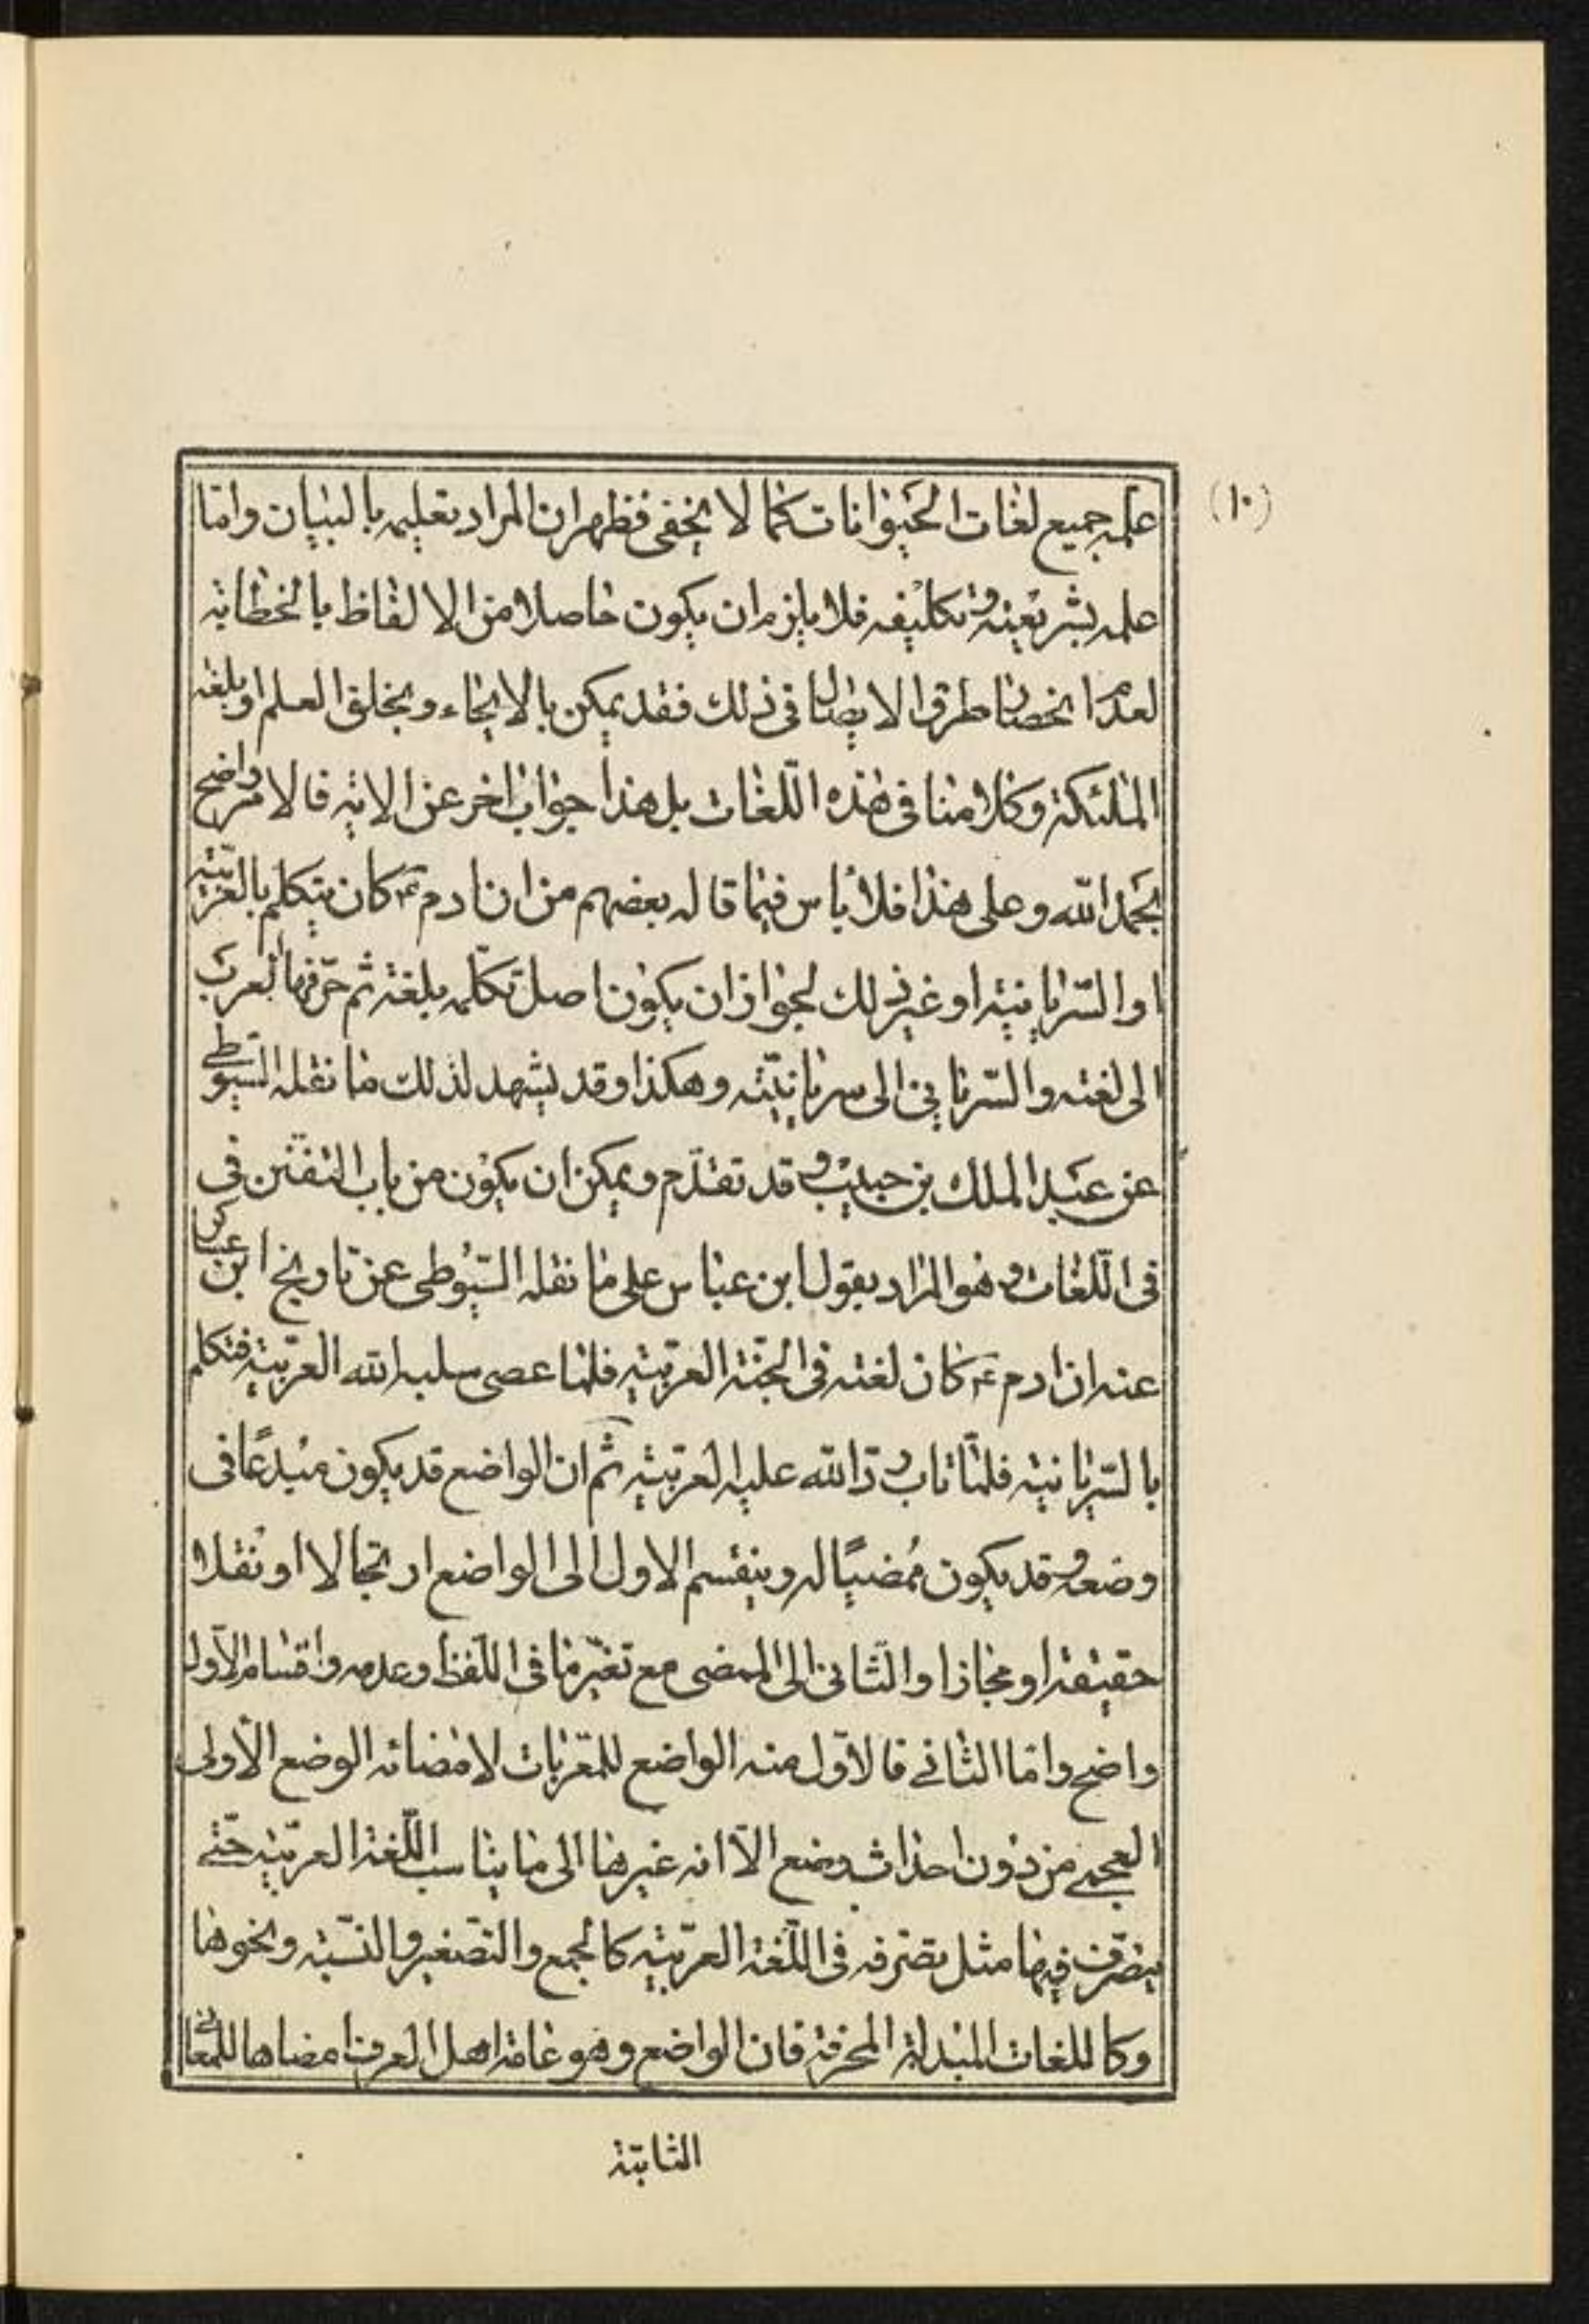 (١٠)
علمه جميع لغات الحيوانات كما لا يخفى فظهر ان المراد تعليمه بالبيان وامّا
علمه بشريعته وتكليفه فلا يلزم ان يكون حاصلا من الالفاظ بالخطابة
لعدم انحصار طرق الايصال فى ذلك فقد يمكن بالايحاء وبخلق العلم او بلغة
الملئكة وكلامنا فى هذه اللّغات بل هذا جواب اخر عن الاية فالامر واضح
بحمد اللّه وعلى هذا فلا باس فيما قاله بعضهم من ان ادم ع كان يتكلم بالعربيّة
او السّريانية او غير ذلك لجواز ان يكون اصل تكلّمه بلغة ثم حرّفها العرب
الى لغته والسّريانى الى سريانيّته وهكذا وقد يشهد لذلك ما نقله السّيوطى
عن عبد الملك بن حبيب وقد تقدّم ويمكن ان يكون من باب التفنّن فى
فى اللّغات وهو المراد بقول ابن عباس على ما نقله السّيوطى عن تاريخ ابن عساكر
عنه ان ادم ع كان لغته فى الجنّة العربيّة فلما عصى سلبه اللّه العربيّة فتكلم
بالسّريانية فلمّا تاب ردّ اللّه عليه العربيّة ثم ان الواضع قد يكون مبدعًا فى
وضعه وقد يكون مُمضيًا له وينقسم الاول الى الواضع ارتجالا او نقلا
حقيقة او مجازا والثّانى الى الممضى مع تغيّر ما فى اللّفظ وعدمه واقسام الاّول
واضح وامّا الثّانى فالاوّل منه الواضع للمعّربات لامضائه الوضع الاّولى
العجمى من دون احداث وضع الاّ انه غيرها الى ما يناسب اللّغة العربيّة حتّى
يتصّرف فيها مثل تصّرفه فى اللّغة العربيّة كالجمع والتّصغير والنّسبة ونحوها
وكاللغات المبدلة المحرفة فان الواضع وهو عامة اهل العرف امضاها للمعانى
الثابتة